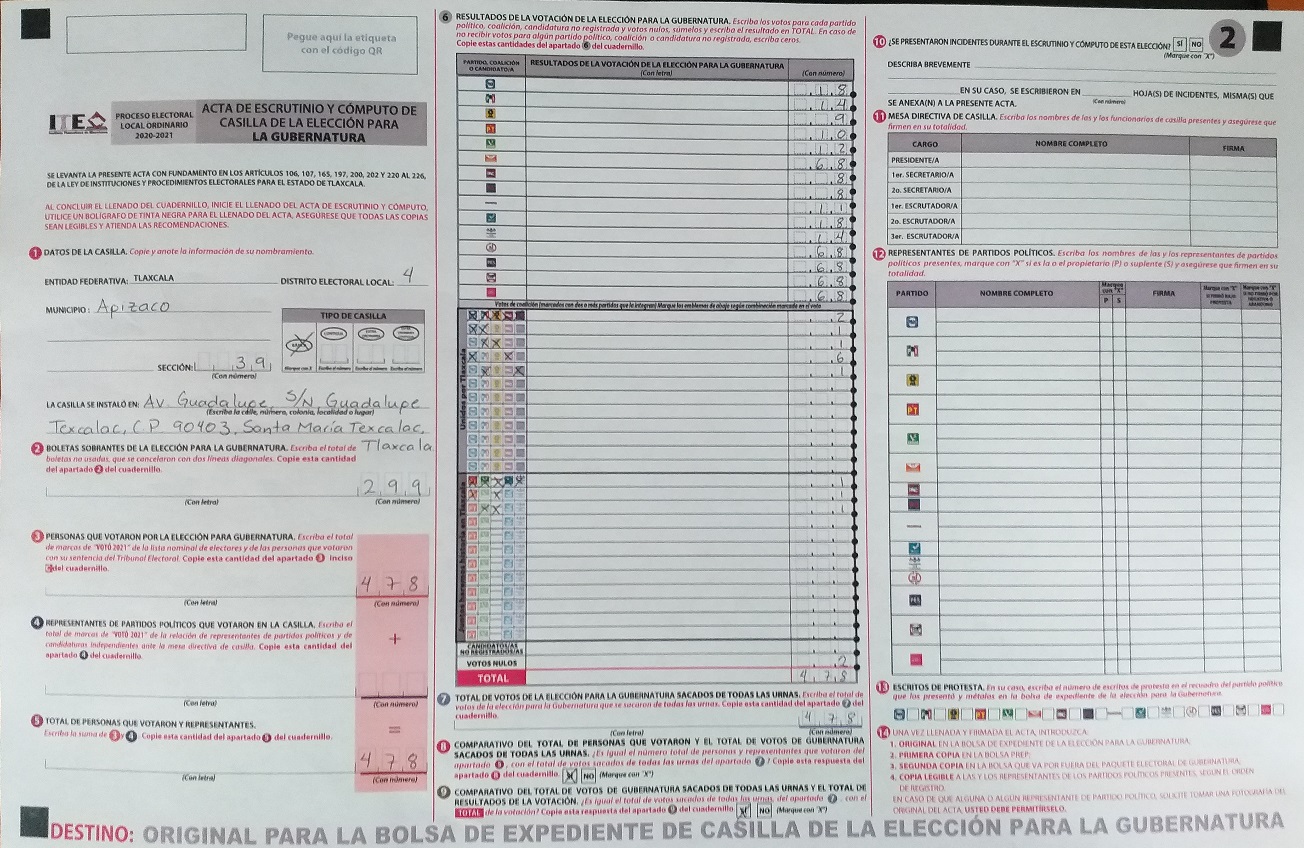 Pegue aquí la etiqueta
con el código QR
ITE
PROCESO ELECTORAL
LOCAL ORDINARIO
2020-2021
ACTA DE ESCRUTINIO Y CÓMPUTO DE
CASILLA DE LA ELECCIÓN PARA
LA GUBERNATURA
SE LEVANTA LA PRESENTE ACTA CON FUNDAMENTO EN LOS ARTÍCULOS 106, 107, 165, 197, 200, 202 Y 220 AL 226,
DE LA LEY DE INSTITUCIONES Y PROCEDIMIENTOS ELECTORALES PARA EL ESTADO DE TLAXCALA.
AL CONCLUIR EL LLENADO DEL CUADERNILLO, INICIE EL LLENADO DEL ACTA DE ESCRUTINIO Y CÓMPUTO,
UTILICE UN BOLÍGRAFO DE TINTA NEGRA PARA EL LLENADO DEL ACTA, ASEGÚRESE QUE TODAS LAS COPIAS
SEAN LEGIBLES Y ATIENDA LAS RECOMENDACIONES.
1 DATOS DE LA CASILLA. Copie y anote la información de su nombramiento.
ENTIDAD FEDERATIVA: TLAXCALA DISTRITO ELECTORAL LOCAL: 4
MUNICIPIO: Apizaco
TIPO DE CASILLA
SECCIÓN: 39
(Con número)
LA CASILLA SE INSTALÓ EN: Av. Guadalupe, S/N, Guadalupe
(Escriba la calle, número, colonia, localidad o lugar)
Texcalac, C.P. 90403, Santa María Texcalac,
Tlaxcala
2 BOLETAS SOBRANTES DE LA ELECCIÓN PARA LA GUBERNATURA. Escriba el total de
boletas no usadas, que se cancelaron con dos líneas diagonales. Copie esta cantidad
del apartado 2 del cuadernillo.
299
(Con letra) (Con número)
3 PERSONAS QUE VOTARON POR LA ELECCIÓN PARA GUBERNATURA. Escriba el total
de marcas de "VOTÓ 2021" de la lista nominal de electores y de las personas que votaron
con su sentencia del Tribunal Electoral. Copie esta cantidad del apartado 3 inciso
del cuadernillo.
478
(Con letra) (Con número)
4 REPRESENTANTES DE PARTIDOS POLÍTICOS QUE VOTARON EN LA CASILLA. Escriba el
total de marcas de "VOTÓ 2021" de la relación de representantes de partidos políticos y de
candidaturas independientes ante la mesa directiva de casilla. Copie esta cantidad del
apartado 4 del cuadernillo.
+
(Con letra) (Con número)
5 TOTAL DE PERSONAS QUE VOTARON Y REPRESENTANTES.
Escriba la suma de 3 y 4 Copie esta cantidad del apartado 5 del cuadernillo.
=
478
(Con letra) (Con número)
6 RESULTADOS DE LA VOTACIÓN DE LA ELECCIÓN PARA LA GUBERNATURA. Escriba los votos para cada partido
político, coalición, candidatura no registrada y votos nulos, súmelos y escriba el resultado en TOTAL. En caso de
no recibir votos para algún partido político, coalición o candidatura no registrada, escriba ceros.
Copie estas cantidades del apartado 6 del cuadernillo.
PARTIDO, COALICIÓN
O CANDIDATO/A
RESULTADOS DE LA VOTACIÓN DE LA ELECCIÓN PARA LA GUBERNATURA
(Con letra) (Con número)
18
14
9
10
12
68
8
8
11
18
14
68
68
68
68
Votos de coalición (marcados con dos o más partidos que la integran) Marque los emblemas de abajo según combinación marcada en el voto
2
1
1
6
1
1
1
1
CANDIDATOS/AS
NO REGISTRADOS/AS
VOTOS NULOS 2
TOTAL 478
7 TOTAL DE VOTOS DE LA ELECCIÓN PARA LA GUBERNATURA SACADOS DE TODAS LAS URNAS. Escriba el total de
votos de la elección para la Gubernatura que se sacaron de todas las urnas. Copie esta cantidad del apartado 7 del
cuadernillo.
478
(Con letra) (Con número)
8 COMPARATIVO DEL TOTAL DE PERSONAS QUE VOTARON Y EL TOTAL DE VOTOS DE GUBERNATURA
SACADOS DE TODAS LAS URNAS. ¿Es igual el número total de personas y representantes que votaron del
apartado 5, con el total de votos sacados de todas las urnas del apartado 7? Copie esta respuesta del
apartado 8 del cuadernillo. NO (Marque con "X")
9 COMPARATIVO DEL TOTAL DE VOTOS DE GUBERNATURA SACADOS DE TODAS LAS URNAS Y EL TOTAL DE
RESULTADOS DE LA VOTACIÓN. ¿Es igual el total de votos sacados de todas las urnas del apartado 7, con el
TOTAL de la votación? Copie esta respuesta del apartado 9 del cuadernillo NO (Marque con "X")
2
10 ¿SE PRESENTARON INCIDENTES DURANTE EL ESCRUTINIO Y CÓMPUTO DE ESTA ELECCIÓN? SÍ NO
(Marque con "X")
DESCRIBA BREVEMENTE
EN SU CASO, SE ESCRIBIERON EN HOJA(S) DE INCIDENTES, MISMA(S) QUE
(Con número)
SE ANEXA(N) A LA PRESENTE ACTA.
11 MESA DIRECTIVA DE CASILLA. Escriba los nombres de las y los funcionarios de casilla presentes y asegúrese que
firmen en su totalidad.
CARGO NOMBRE COMPLETO FIRMA
PRESIDENTE/A
1er. SECRETARIO/A
2o. SECRETARIO/A
1er. ESCRUTADOR/A
2o. ESCRUTADOR/A
3er. ESCRUTADOR/A
12 REPRESENTANTES DE PARTIDOS POLÍTICOS. Escriba los nombres de las y los representantes de partidos
políticos presentes, marque con "X" si es la o el propietario (P) o suplente (S) y asegúrese que firmen en su
totalidad.
PARTIDO NOMBRE COMPLETO Marque con "X" P S FIRMA
13 ESCRITOS DE PROTESTA. En su caso, escriba el número de escritos de protesta en el recuadro del partido político
que los presentó y métalos en la bolsa de expediente de la elección para la Gubernatura.
14 UNA VEZ LLENADA Y FIRMADA EL ACTA, INTRODUZCA:
1. ORIGINAL EN LA BOLSA DE EXPEDIENTE DE LA ELECCIÓN PARA LA GUBERNATURA.
2. PRIMERA COPIA EN LA BOLSA PREP.
3. SEGUNDA COPIA EN LA BOLSA QUE VA POR FUERA DEL PAQUETE ELECTORAL DE GUBERNATURA.
4. COPIA LEGIBLE A LAS Y LOS REPRESENTANTES DE LOS PARTIDOS POLÍTICOS PRESENTES, SEGÚN EL ORDEN
DE REGISTRO.
EN CASO DE QUE ALGUNA O ALGÚN REPRESENTANTE DE PARTIDO POLÍTICO, SOLICITE TOMAR UNA FOTOGRAFÍA DEL
ORIGINAL DEL ACTA, USTED DEBE PERMITÍRSELO.
DESTINO: ORIGINAL PARA LA BOLSA DE EXPEDIENTE DE CASILLA DE LA ELECCIÓN PARA LA GUBERNATURA